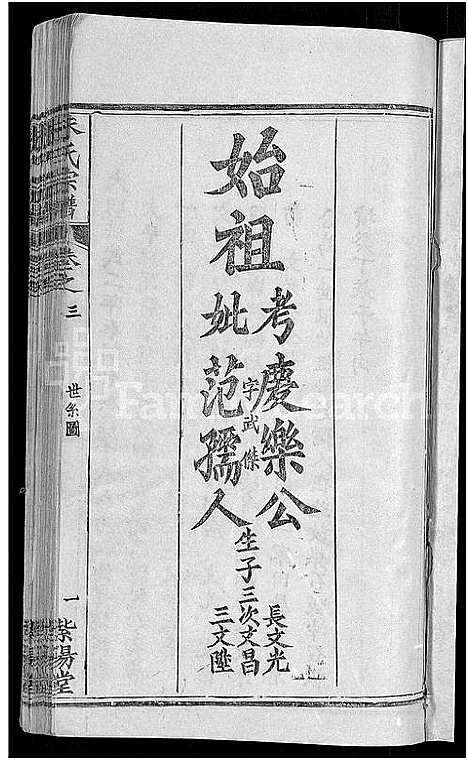 始祖
考慶樂公
字武傑
妣范孺人
生子三
長文光
次文昌
三文陞
朱氏宗譜
卷之三
世系圖
一
紫陽堂